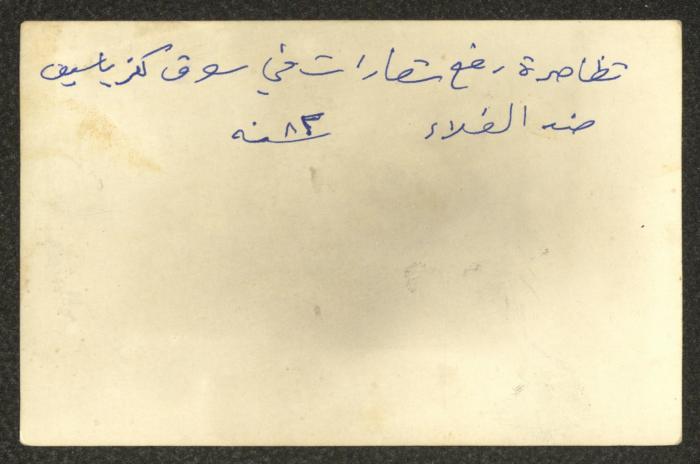 تظاهرة رفع شعارات في سوق كفر ياسيف
ضد الغلاء سنه ٨٣